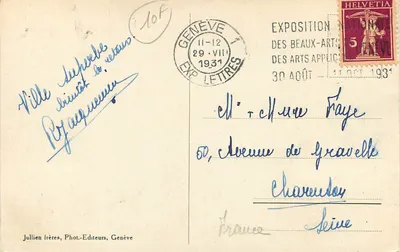 10F
GENÈVE 1
11-12
29·VIII
1931
EXP. LETTRES
EXPOSITION
DES BEAUX-ART
DES ARTS APPLIC
30 AOÛT - 11 OCT. 1931
HELVETIA
5
Ville superbe
bientôt le retour
Mr et Mme Faye
50, Avenue de Gravelle
Charenton
France
Seine
Jullien frères, Phot.-Editeurs, Genève